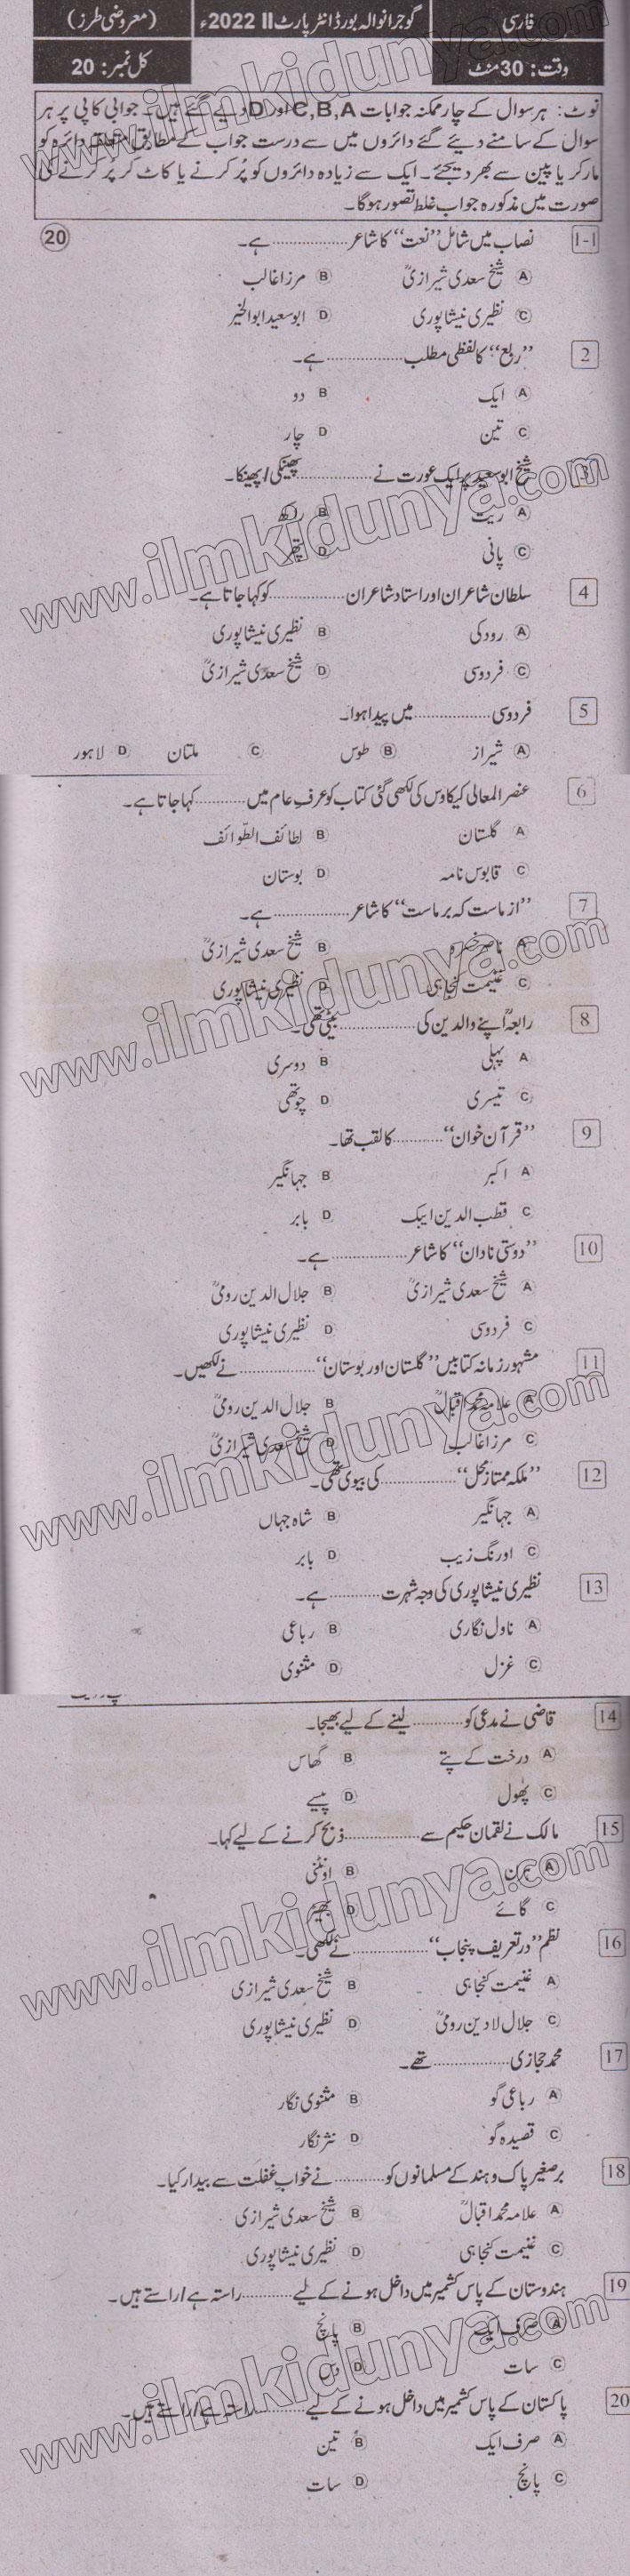 فارسی
گوجرانوالہ بورڈ انٹر پارٹ II 2022ء
(معروضی طرز)
وقت: 30 منٹ
کل نمبر: 20
نوٹ: ہر سوال کے چار ممکنہ جوابات C,B,A اور D دیے گئے ہیں۔ جوابی کاپی پر ہر
سوال کے سامنے دیئے گئے دائروں میں سے درست جواب کے مطابق متعلقہ دائرہ کو
مارکر یا پین سے بھر دیجئے۔ ایک سے زیادہ دائروں کو پُر کرنے یا کاٹ کر پر کرنے کی
صورت میں مذکورہ جواب غلط تصور ہوگا۔
1-1 نصاب میں شامل ”نعت“ کا شاعر .......... ہے۔ 20
A شیخ سعدی شیرازیؒ B مرزا غالب
C نظیری نیشاپوری D ابوسعید ابوالخیر
2 ”ربع“ کا لفظی مطلب .......... ہے۔
A ایک B دو
C تین D چار
3 شیخ ابوسعید پر ایک عورت نے .......... پھینکی/پھینکا۔
A ریت B راکھ
C پانی D پتھر
4 سلطان شاعران اور استاد شاعران .......... کو کہا جاتا ہے۔
A رودکی B نظیری نیشاپوری
C فردوسی D شیخ سعدی شیرازیؒ
5 فردوسی .......... میں پیدا ہوا۔
A شیراز B طوس C ملتان D لاہور
6 عنصر المعالی کیکاوس کی لکھی گئی کتاب کو عرفِ عام میں .......... کہا جاتا ہے۔
A گلستان B لطائف الطوائف
C قابوس نامہ D بوستان
7 ”از ماست کہ بر ماست“ کا شاعر .......... ہے۔
A ناصر خسرو B شیخ سعدی شیرازیؒ
C غنیمت کنجاہی D نظیری نیشاپوری
8 رابعہؒ اپنے والدین کی .......... بیٹی تھی۔
A پہلی B دوسری
C تیسری D چوتھی
9 ”قرآن خوان“ .......... کا لقب تھا۔
A اکبر B جہانگیر
C قطب الدین ایبک D بابر
10 ”دوستی نادان“ کا شاعر .......... ہے۔
A شیخ سعدی شیرازیؒ B جلال الدین رومیؒ
C فردوسی D نظیری نیشاپوری
11 مشہور زمانہ کتابیں ”گلستان اور بوستان“ .......... نے لکھیں۔
A علامہ محمد اقبالؒ B جلال الدین رومیؒ
C مرزا غالب D شیخ سعدی شیرازیؒ
12 ”ملکہ ممتاز محل“ .......... کی بیوی تھی۔
A جہانگیر B شاہ جہاں
C اورنگ زیب D بابر
13 نظیری نیشاپوری کی وجہ شہرت .......... ہے۔
A ناول نگاری B رباعی
C غزل D مثنوی
14 قاضی نے مدعی کو .......... لینے کے لیے بھیجا۔
A درخت کے پتے B گھاس
C پھول D پیسے
15 مالک نے لقمان حکیم سے .......... ذبح کرنے کے لیے کہا۔
A ہرن B اونٹنی
C گائے D بھیڑ
16 نظم ”در تعریف پنجاب“ .......... نے لکھی۔
A غنیمت کنجاہی B شیخ سعدی شیرازی
C جلال لادین رومیؒ D نظیری نیشاپوری
17 محمد حجازی .......... تھے۔
A رباعی گو B مثنوی نگار
C قصیدہ گو D نثر نگار
18 برصغیر پاک و ہند کے مسلمانوں کو .......... نے خوابِ غفلت سے بیدار کیا۔
A علامہ محمد اقبالؒ B شیخ سعدی شیرازی
C غنیمت کنجاہی D نظیری نیشاپوری
19 ہندوستان کے پاس کشمیر میں داخل ہونے کے لیے .......... راستہ ہے/راستے ہیں۔
A صرف ایک B پانچ
C سات D دس
20 پاکستان کے پاس کشمیر میں داخل ہونے کے لیے .......... راستہ ہے/راستے ہیں۔
A صرف ایک B تین
C پانچ D سات
www.ilmkidunya.com
www.ilmkidunya.com
www.ilmkidunya.com
www.ilmkidunya.com
www.ilmkidunya.com
www.ilmkidunya.com